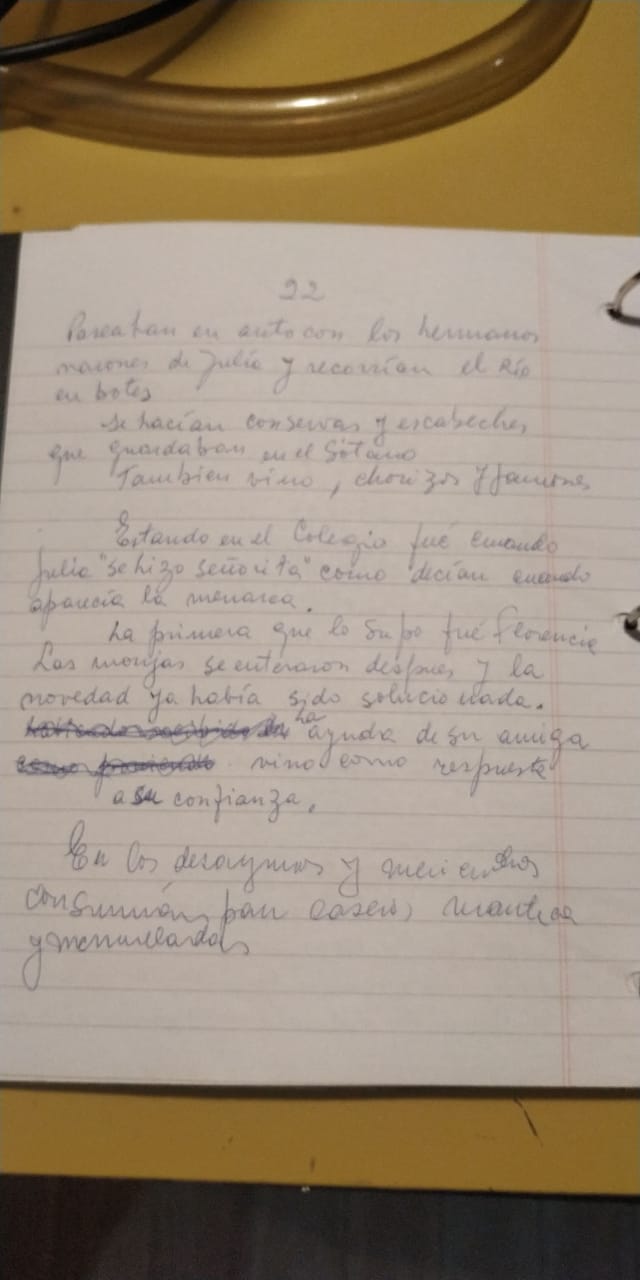 22
Paseaban en auto con los hermanos
mayores de Julia y recorrían el Río
en botes
Se hacían conservas y escabeches
que guardaban en el Sótano
Tambien vino, chorizos y jamones
Estando en el Colegio fué cuando
Julia "se hizo señorita" como decían cuando
aparecía la menarca.
La primera que lo supo fué Florencia
Las monjas se enteraron después y la
novedad ya había sido solucionada.
La ayuda de su amiga
vino como respuesta
a su confianza.
En los desayunos y meriendas
consumían pan casero, manteca
y mermeladas